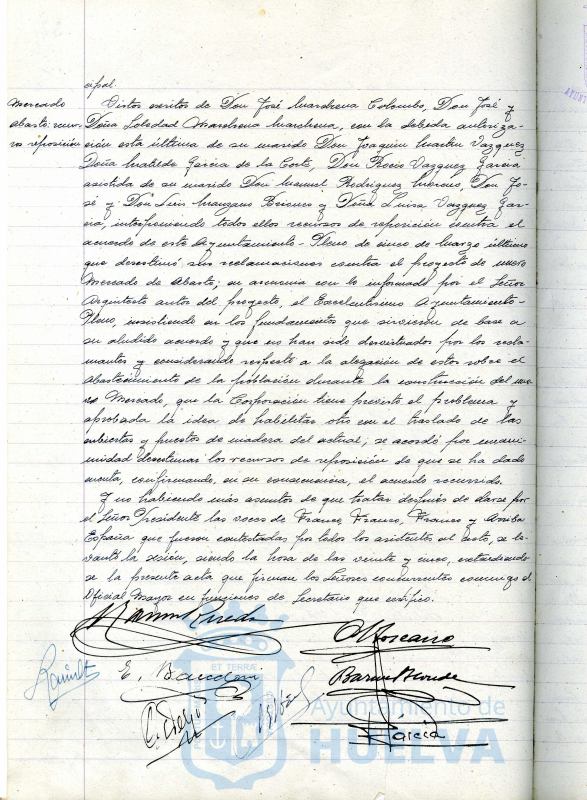 cipal.
Mercado
abasto: nue-
vo reposición
Vistos escritos de Don José Marchena Colombo, Don José y
Doña Soledad Marchena Marchena, con la debida autoriza-
ción esta última de su marido Don Joaquín Martín Vazquez,
Doña Matilde García de la Corte, Don Rocio Vazquez García
asistida de su marido Don Manuel Rodriguez Moreno, Don Jo-
sé y Don Luis Mauzano Briones y Doña Luisa Vazquez Gar-
cia, interponiendo todos ellos recursos de reposición contra el
acuerdo de este Ayuntamiento-Pleno de cinco de Marzo último
que desestimó sus reclamaciones contra el proyecto de nuevo
Mercado de Abasto; en armonía con lo informado por el Señor
Arquitecto autor del proyecto, el Excelentísimo Ayuntamiento-
Pleno, insistiendo en los fundamentos que sirvieron de base a
su aludido acuerdo y que no han sido desvirtuados por los recla-
mantes y considerando respecto a la alegación de estos sobre el
abastecimiento de la población durante la construcción del nue-
vo Mercado, que la Corporación tiene previsto el problema y
aprobada la idea de habilitar otro con el traslado de las
cubiertas y puestos de madera del actual; se acordó por unani-
midad desestimar los recursos de reposición de que se ha dado
cuenta, confirmando, en su consecuencia, el acuerdo recurrido.
Y no habiendo más asuntos de que tratar después de darse por
el Señor Presidente las voces de Franco, Franco, Franco y Arriba
España que fueron contestadas por todos los asistentes al acto, se le-
vantó la sesión, siendo la hora de las veinte y cinco, extendiendo
se la presente acta que firman los Señores concurrentes conmigo el
Oficial Mayor en funciones de Secretario que certifico.
E. Bandón
García
ET TERRÆ
Ayuntamiento de
HUELVA